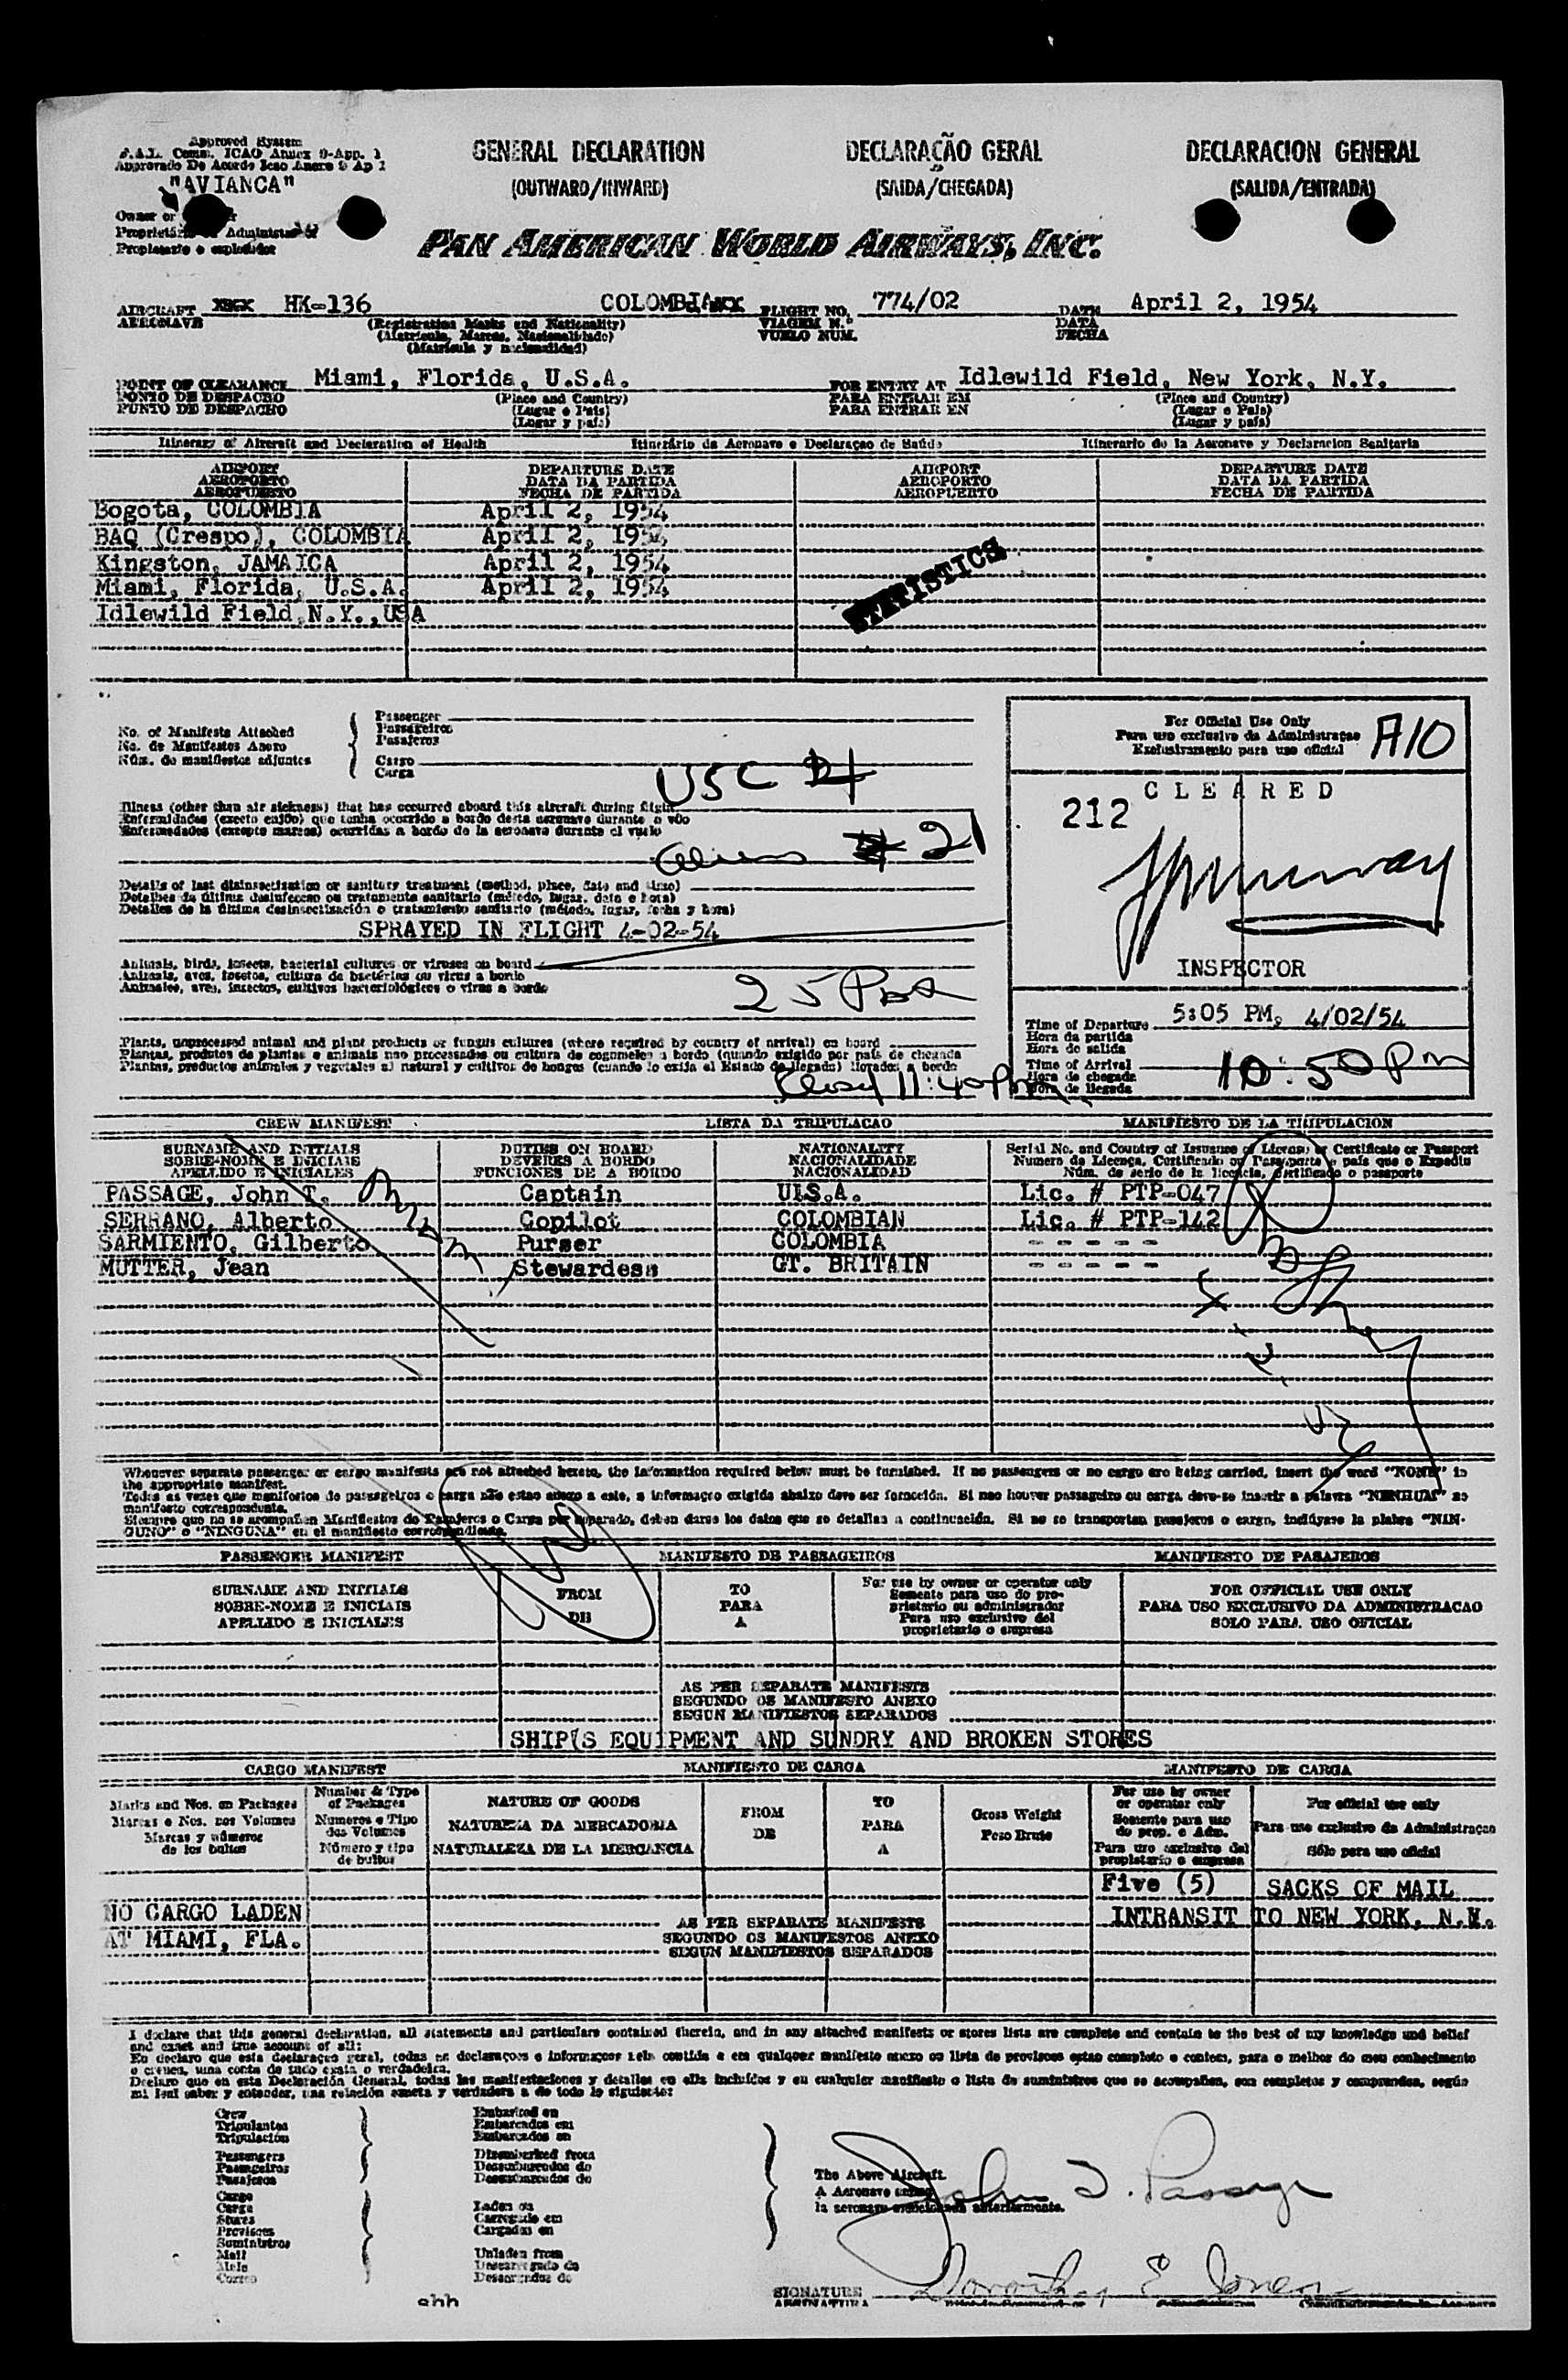 Approved System
F.A.L. Comm. ICAO Annex 9-App. 1
"AVIANCA"
Owner or
GENERAL DECLARATION
(OUTWARD/INWARD)
DECLARAÇÃO GERAL
(SAIDA/CHEGADA)
DECLARACION GENERAL
(SALIDA/ENTRADA)
PAN AMERICAN WORLD AIRWAYS, INC.
AIRCRAFT HK-136 COLOMBIA FLIGHT NO. 774/02 DATE April 2, 1954
AERONAVE (Registration Marks and Nationality) VIAGEM N.º DATA
(Matricula, Marcas, Nacionalidade) VUELO NUM. FECHA
(Matricula y nacionalidad)
POINT OF CLEARANCE Miami, Florida, U.S.A. FOR ENTRY AT Idlewild Field, New York, N.Y.
PONTO DE DESPACHO (Place and Country) PARA ENTRAR EM (Place and Country)
PUNTO DE DESPACHO (Lugar e Pais) PARA ENTRAR EN (Lugar e Pais)
(Lugar y país) (Lugar y país)
Itinerary of Aircraft and Declaration of Health Itinerário da Aeronave e Declaraçao de Saúde Itinerario de la Aeronave y Declaracion Sanitaria
AIRPORT DEPARTURE DATE AIRPORT DEPARTURE DATE
AEROPORTO DATA DA PARTIDA AEROPORTO DATA DA PARTIDA
AEROPUERTO FECHA DE PARTIDA AEROPUERTO FECHA DE PARTIDA
Bogota, COLOMBIA April 2, 1954
BAQ (Crespo), COLOMBIA April 2, 1954
Kingston, JAMAICA April 2, 1954
Miami, Florida, U.S.A. April 2, 1954
Idlewild Field,N.Y.,USA
STATISTICS
No. of Manifests Attached
No. de Manifestos Anexo
Núm. de manifiestos adjuntos
Passenger
Passageiros
Pasajeros
Cargo
Carga
USC
For Official Use Only
Para uso exclusivo da Administraçao
Exclusivamente para uso oficial
A10
CLEARED
212
INSPECTOR
Illness (other than air sickness) that has occurred aboard this aircraft during flight
Enfermidades (exceto enjôo) que tenha ocorrido a bordo desta aeronave durante o vôo
Enfermedades (excepto mareos) ocurridas a bordo de la aeronave durante el vuelo
Aliens 21
Details of last disinsectization or sanitary treatment (method, place, date and time)
Detalhes da última desinfeccao ou tratamento sanitario (método, lugar, data e hora)
Detalles de la última desinsectización o tratamiento sanitario (método, lugar, fecha y hora)
SPRAYED IN FLIGHT 4-02-54
Animals, birds, insects, bacterial cultures or viruses on board
Animais, aves, insetos, cultura de bactérias ou virus a bordo
Animales, aves, insectos, cultivos bacteriológicos o virus a bordo
25
Time of Departure 5:05 PM, 4/02/54
Hora da partida
Hora de salida
Time of Arrival 10:50 Pm
Hora de chegada
Hora de llegada
Plants, unprocessed animal and plant products or fungus cultures (where required by country of arrival) on board
Plantas, produtos de plantas e animais nao processados ou cultura de cogumelos a bordo (quando exigido por país de chegada
Plantas, productos animales y vegetales al natural y cultivos de hongos (cuando lo exija el Estado de llegada) llevados a bordo
Closed 11:40 Pm
CREW MANIFEST LISTA DA TRIPULACAO MANIFIESTO DE LA TRIPULACION
SURNAME AND INITIALS DUTIES ON BOARD NATIONALITY Serial No. and Country of Issuance of License or Certificate or Passport
SOBRE-NOME E INICIAIS DEVERES A BORDO NACIONALIDADE Numero da Licença, Certificado ou Passaporte e país que o Expediu
APELLIDO E INICIALES FUNCIONES DE A BORDO NACIONALIDAD Núm. de serie de la licencia, certificado o pasaporte
PASSAGE, John T. Captain U.S.A. Lic. # PTP-047
SERRANO, Alberto Copilot COLOMBIAN Lic. # PTP-142
SARMIENTO, Gilberto Purser COLOMBIA - - - - -
MUTTER, Jean Stewardess GT. BRITAIN - - - - -
Whenever separate passenger or cargo manifests are not attached hereto, the information required below must be furnished. If no passengers or no cargo are being carried, insert the word "NONE" in
the appropriate manifest.
Todas as vezes que manifestos de passageiros o carga não estao anexo a este, a informaçao exigida abaixo deve ser fornecida. Si nao houver passageiro ou carga, deve-se inserir a palavra "NENHUM" no
manifesto correspondente.
Siempre que no se acompañen Manifiestos de Pasajeros o Carga por separado, deben darse los datos que se detallan a continuación. Si no se transportan pasajeros o cargo, inclúyase la plabra "NIN-
GUNO" o "NINGUNA" en el manifiesto correspondiente.
PASSENGER MANIFEST MANIFESTO DE PASSAGEIROS MANIFIESTO DE PASAJEROS
SURNAME AND INITIALS FROM TO For use by owner or operator only FOR OFFICIAL USE ONLY
SOBRE-NOME E INICIAIS DE PARA Somente para uso do pro- PARA USO EXCLUSIVO DA ADMINISTRACAO
APELLIDO E INICIALES A prietario ou administrador SOLO PARA USO OFICIAL
Para uso exclusivo del
proprietario o empresa
AS PER SEPARATE MANIFESTS
SEGUNDO OS MANIFESTO ANEXO
SEGUN MANIFIESTOS SEPARADOS
SHIP'S EQUIPMENT AND SUNDRY AND BROKEN STORES
CARGO MANIFEST MANIFIESTO DE CARGA MANIFESTO DE CARGA
Marks and Nos. on Packages
Marcas e Nos. nos Volumes
Marcas y números
de los bultos
Number & Type
of Packages
Numeros e Tipo
dos Volumes
Número y tipo
de bultos
NATURE OF GOODS
NATUREZA DA MERCADORIA
NATURALEZA DE LA MERCANCIA
FROM
DE
TO
PARA
A
Gross Weight
Peso Bruto
For use by owner
or operator only
Somente para uso
do prop. e Adm.
Para uso exclusivo del
propietario o empresa
For official use only
Para uso exclusivo da Administraçao
Sólo para uso oficial
Five (5) SACKS OF MAIL
NO CARGO LADEN INTRANSIT TO NEW YORK, N.Y.
AT MIAMI, FLA.
AS PER SEPARATE MANIFESTS
SEGUNDO OS MANIFESTOS ANEXO
SEGUN MANIFIESTOS SEPARADOS
I declare that this general declaration, all statements and particulars contained therein, and in any attached manifests or stores lists are complete and contain to the best of my knowledge and belief
and exact and true account of all:
Eu declaro que esta declaraçao geral, todas as declaraçoes e informaçoes nela contida e em qualquer manifesto anexo ou lista de provisoes estao completo e contem, para o melhor do meu conhecimento
e crença, uma conta de tudo exata o verdadeira.
Declaro que en esta Declaración General, todas las manifestaciones y detalles en ella incluídos y en cualquier manifiesto o lista de suministros que se acompañen, son completos y comprenden, según
mi leal saber y entender, una relación exacta y verdadera a de todo lo siguiente:
Crew
Tripulantes
Tripulación
Passengers
Passageiros
Pasajeros
Cargo
Carga
Stores
Provisoes
Suministros
Mail
Mala
Correo
Embarked on
Embarcados em
Embarcados en
Disembarked from
Desembarcados do
Desembarcados de
Laden on
Carregado em
Cargados en
Unladen from
Descarregado do
Descargados de
The Above Aircraft.
A Aeronave
la aeronave mencionada anteriormente.
John T. Passage
SIGNATURE Dorothy E. Jones